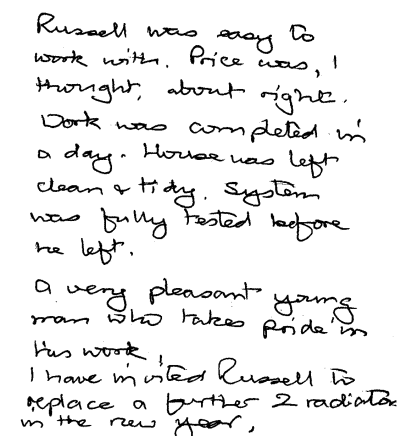 Russell was easy to
work with. Price was, I
thought, about right.
Work was completed in
a day. House was left
clean & tidy. System
was fully tested before
he left.
A very pleasant young
man who takes pride in
his work,
I have invited Russell to
replace a further 2 radiators
in the new year,